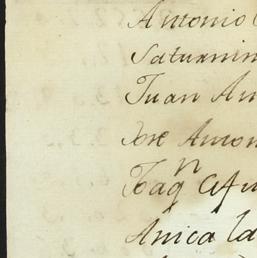 Antonio
Saturnin
Juan An
Jose Anton
Joaqn
Anica la